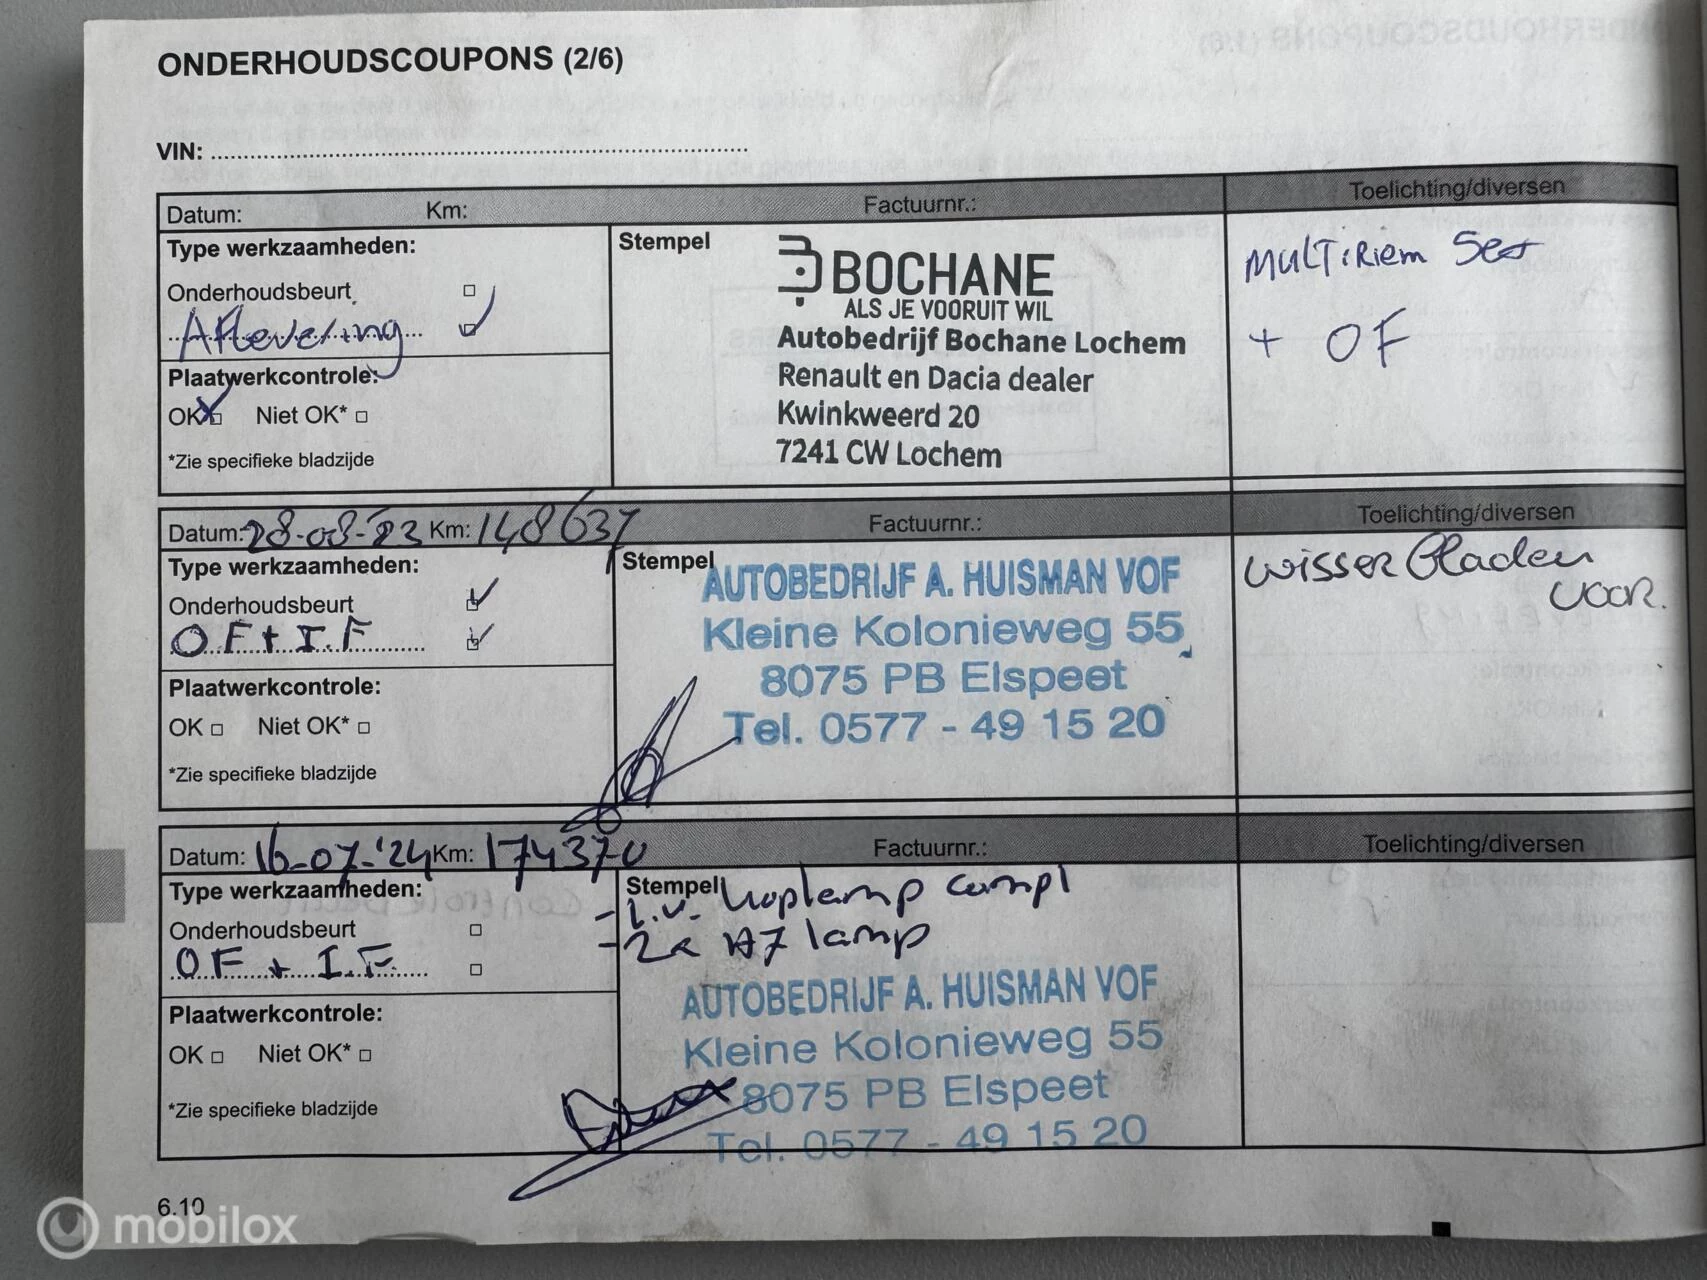 ONDERHOUDSCOUPONS (2/6)
VIN:
Datum: Km: Factuurnr.: Toelichting/diversen
Type werkzaamheden:
Onderhoudsbeurt
Aflevering
Plaatwerkcontrole:
OK Niet OK*
*Zie specifieke bladzijde
Stempel
BOCHANE
ALS JE VOORUIT WIL
Autobedrijf Bochane Lochem
Renault en Dacia dealer
Kwinkweerd 20
7241 CW Lochem
MULTiRiem Set
+ OF
Datum: 28-08-'23 Km: 148637 Factuurnr.: Toelichting/diversen
Type werkzaamheden:
Onderhoudsbeurt
OF + I.F
Plaatwerkcontrole:
OK Niet OK*
*Zie specifieke bladzijde
Stempel
AUTOBEDRIJF A. HUISMAN VOF
Kleine Kolonieweg 55
8075 PB Elspeet
Tel. 0577 - 49 15 20
wisser Bladen
voor.
Datum: 16-07-'24 Km: 174370 Factuurnr.: Toelichting/diversen
Type werkzaamheden:
Onderhoudsbeurt
OF + I.F.
Plaatwerkcontrole:
OK Niet OK*
*Zie specifieke bladzijde
Stempel
- L.v. koplamp compl
- 2x H7 lamp
AUTOBEDRIJF A. HUISMAN VOF
Kleine Kolonieweg 55
8075 PB Elspeet
Tel. 0577 - 49 15 20
6.10
mobilox